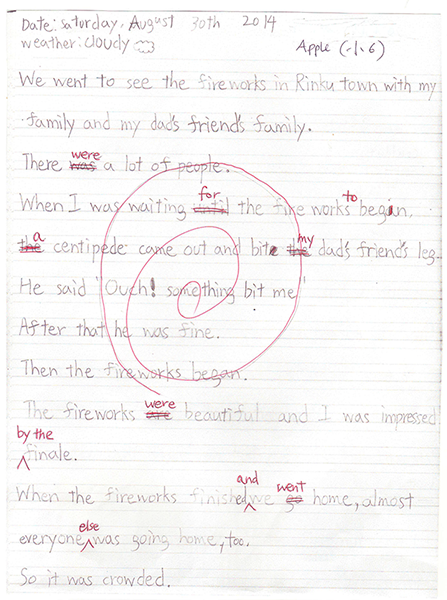 Date: saturday, August 30th 2014
weather: cloudy
Apple (-1.6)
We went to see the fireworks in Rinku town with my
family and my dad's friend's family.
were
There was a lot of people.
for to
When I was waiting until the fire works begin,
a my
the centipede came out and bite the dad's friend's leg.
He said "Ouch! something bit me"
After that he was fine.
Then the fireworks began.
were
The fireworks are beautiful and I was impressed
by the
finale.
and went
When the fireworks finished we go home, almost
else
everyone was going home, too.
So it was crowded.